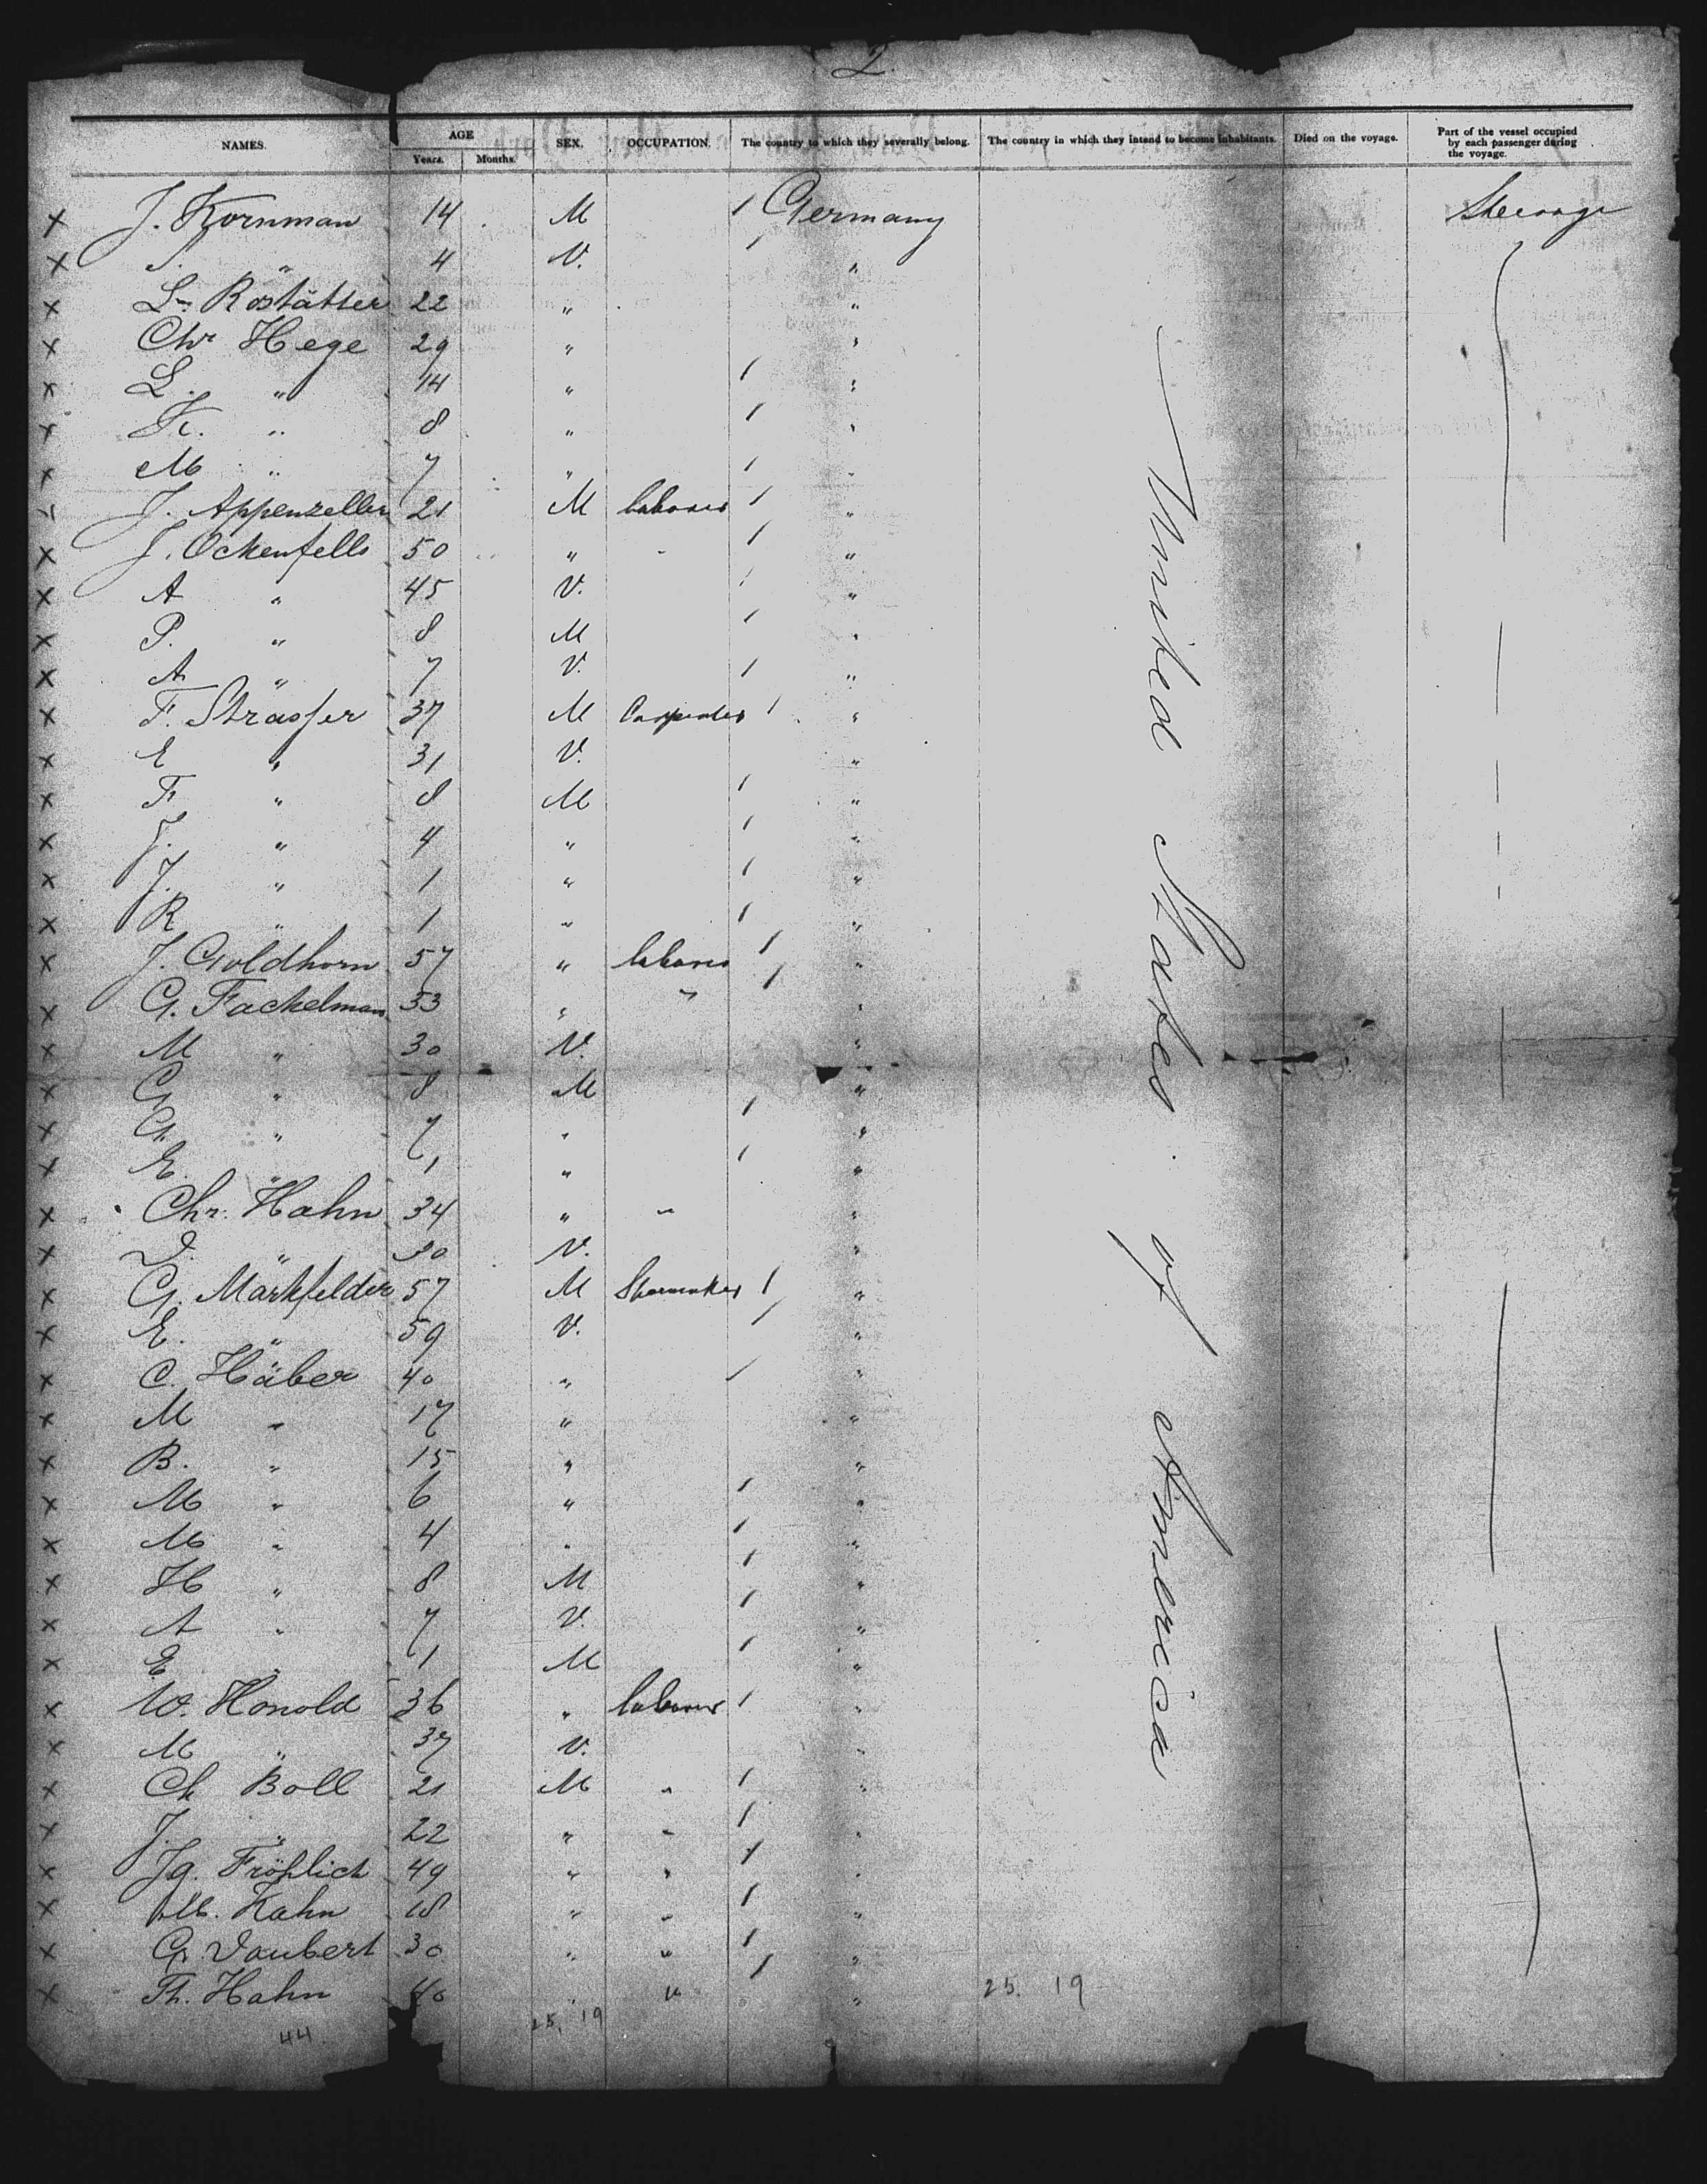 2.
NAMES. AGE Years. Months. SEX. OCCUPATION. The country to which they severally belong. The country in which they intend to become inhabitants. Died on the voyage. Part of the vessel occupied by each passenger during the voyage.
x J. Kornman 14 M / Germany Steerage
x S. " 4 V. / "
x L. Rostätter 22 " "
x Chr Hege 29 " "
x L. " 14 " / "
x K. " 8 " / "
x M " 7 " / "
x J. Appenzeller 21 M laborer / "
x J. Ockenfells 50 " " / "
x A " 45 V. / "
x P. " 8 M / "
x A " 7 V. / "
x F. Strasser 37 M Carpenter / "
x E " 31 V. "
x F " 8 M / "
x J. " 4 " / "
x J. " 1 " / "
x R " 1 " / "
x J. Goldhorn 57 " laborer / "
x G. Fackelman 53 " " / "
x M " 30 V. "
x G " 8 M "
x G. " 7 " / "
x E. " 1 " / "
x Chr. Hahn 34 " " "
x D. " 30 V. "
x G. Märkfelder 57 M Shoemaker / "
x E. " 59 V. / "
x C. Häber 40 " / "
x M " 17 " "
x B. " 15 " "
x M " 6 " / "
x M " 4 " / "
x H " 8 M / "
x A " 7 V. / "
x E " 1 M / "
x W. Honold 36 " laborer / "
x M " 37 V. "
x Ch Boll 21 M " / "
x J. " 22 " " / "
x Jg. Fröhlich 49 " " / "
x M. Kahn 18 " " / "
x G. Daubert 30 " " / "
x Th. Hahn 40 " " / "
United States of America
44. 25, 19 25. 19